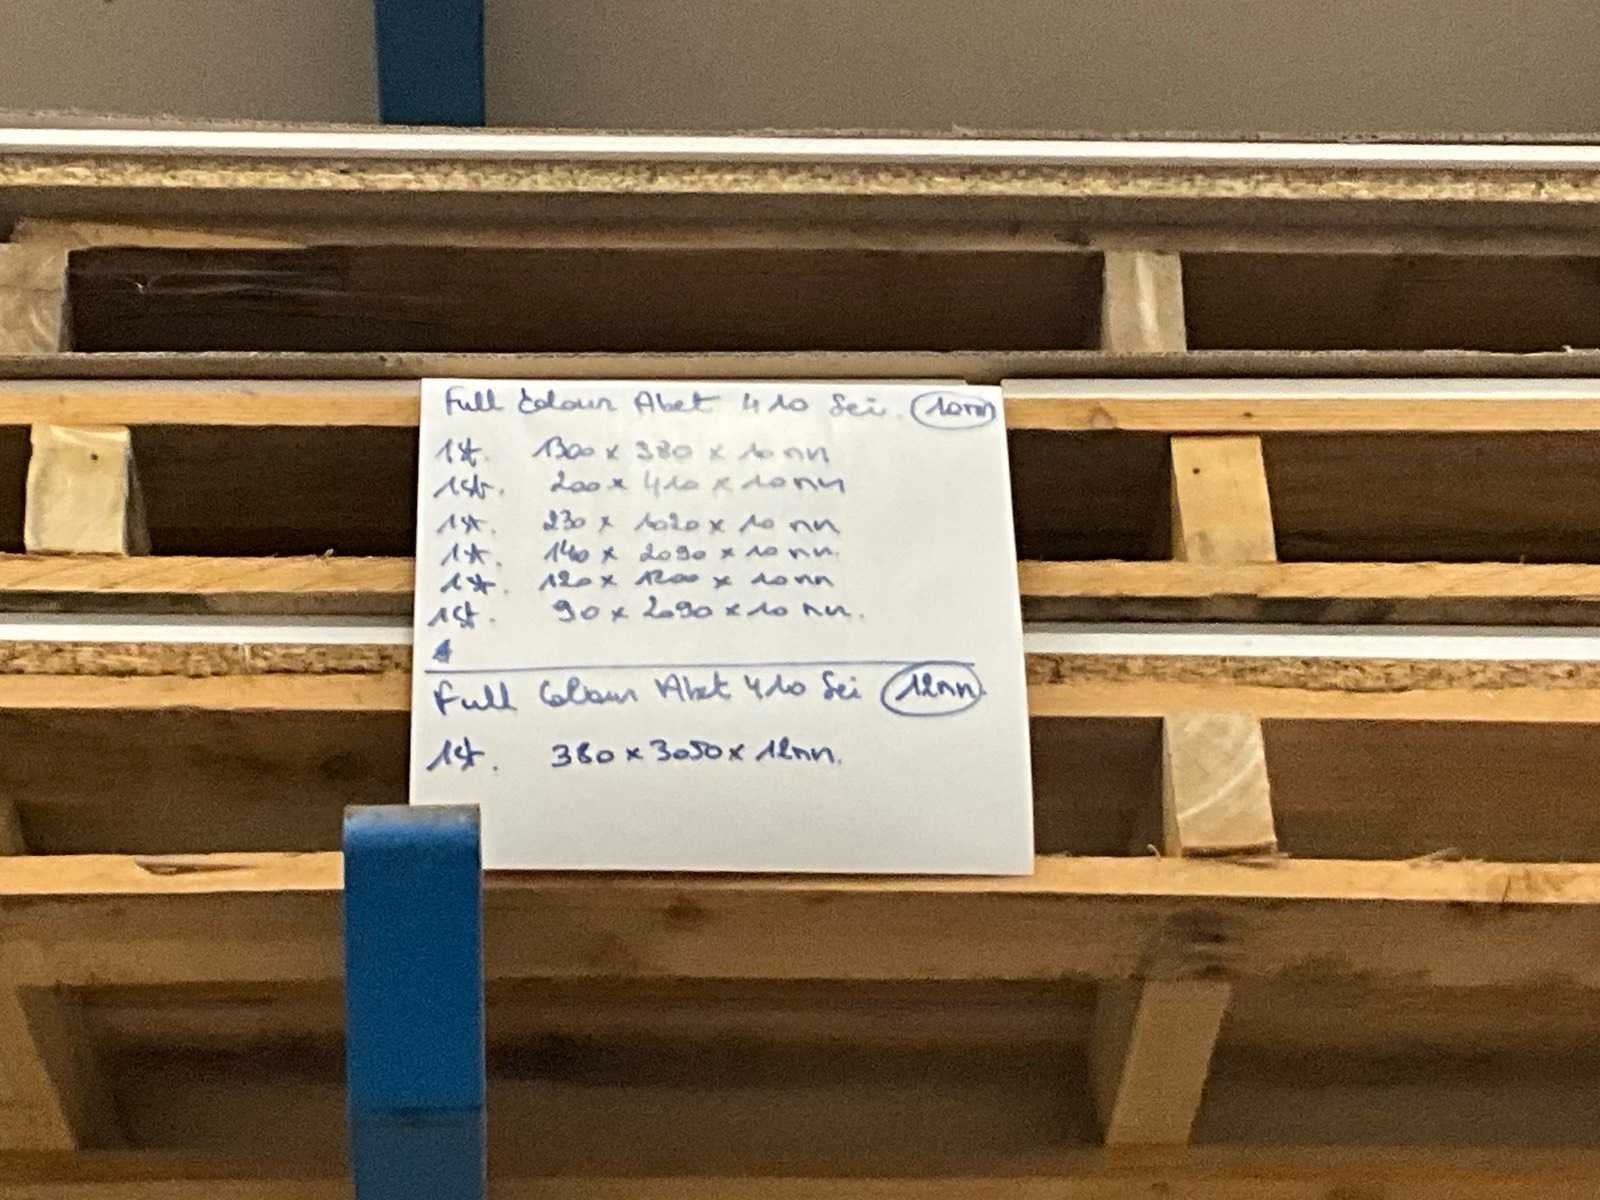 Full Colour Abet 410 Sei. 10mm
1st. 1300 x 380 x 10mm
1st. 200 x 410 x 10mm
1st. 230 x 1020 x 10mm
1st. 140 x 2090 x 10mm.
1st. 120 x 1200 x 10mm
1st. 90 x 2090 x 10mm.
Full Colour Abet 410 Sei 12mm.
1st. 380 x 3050 x 12mm.